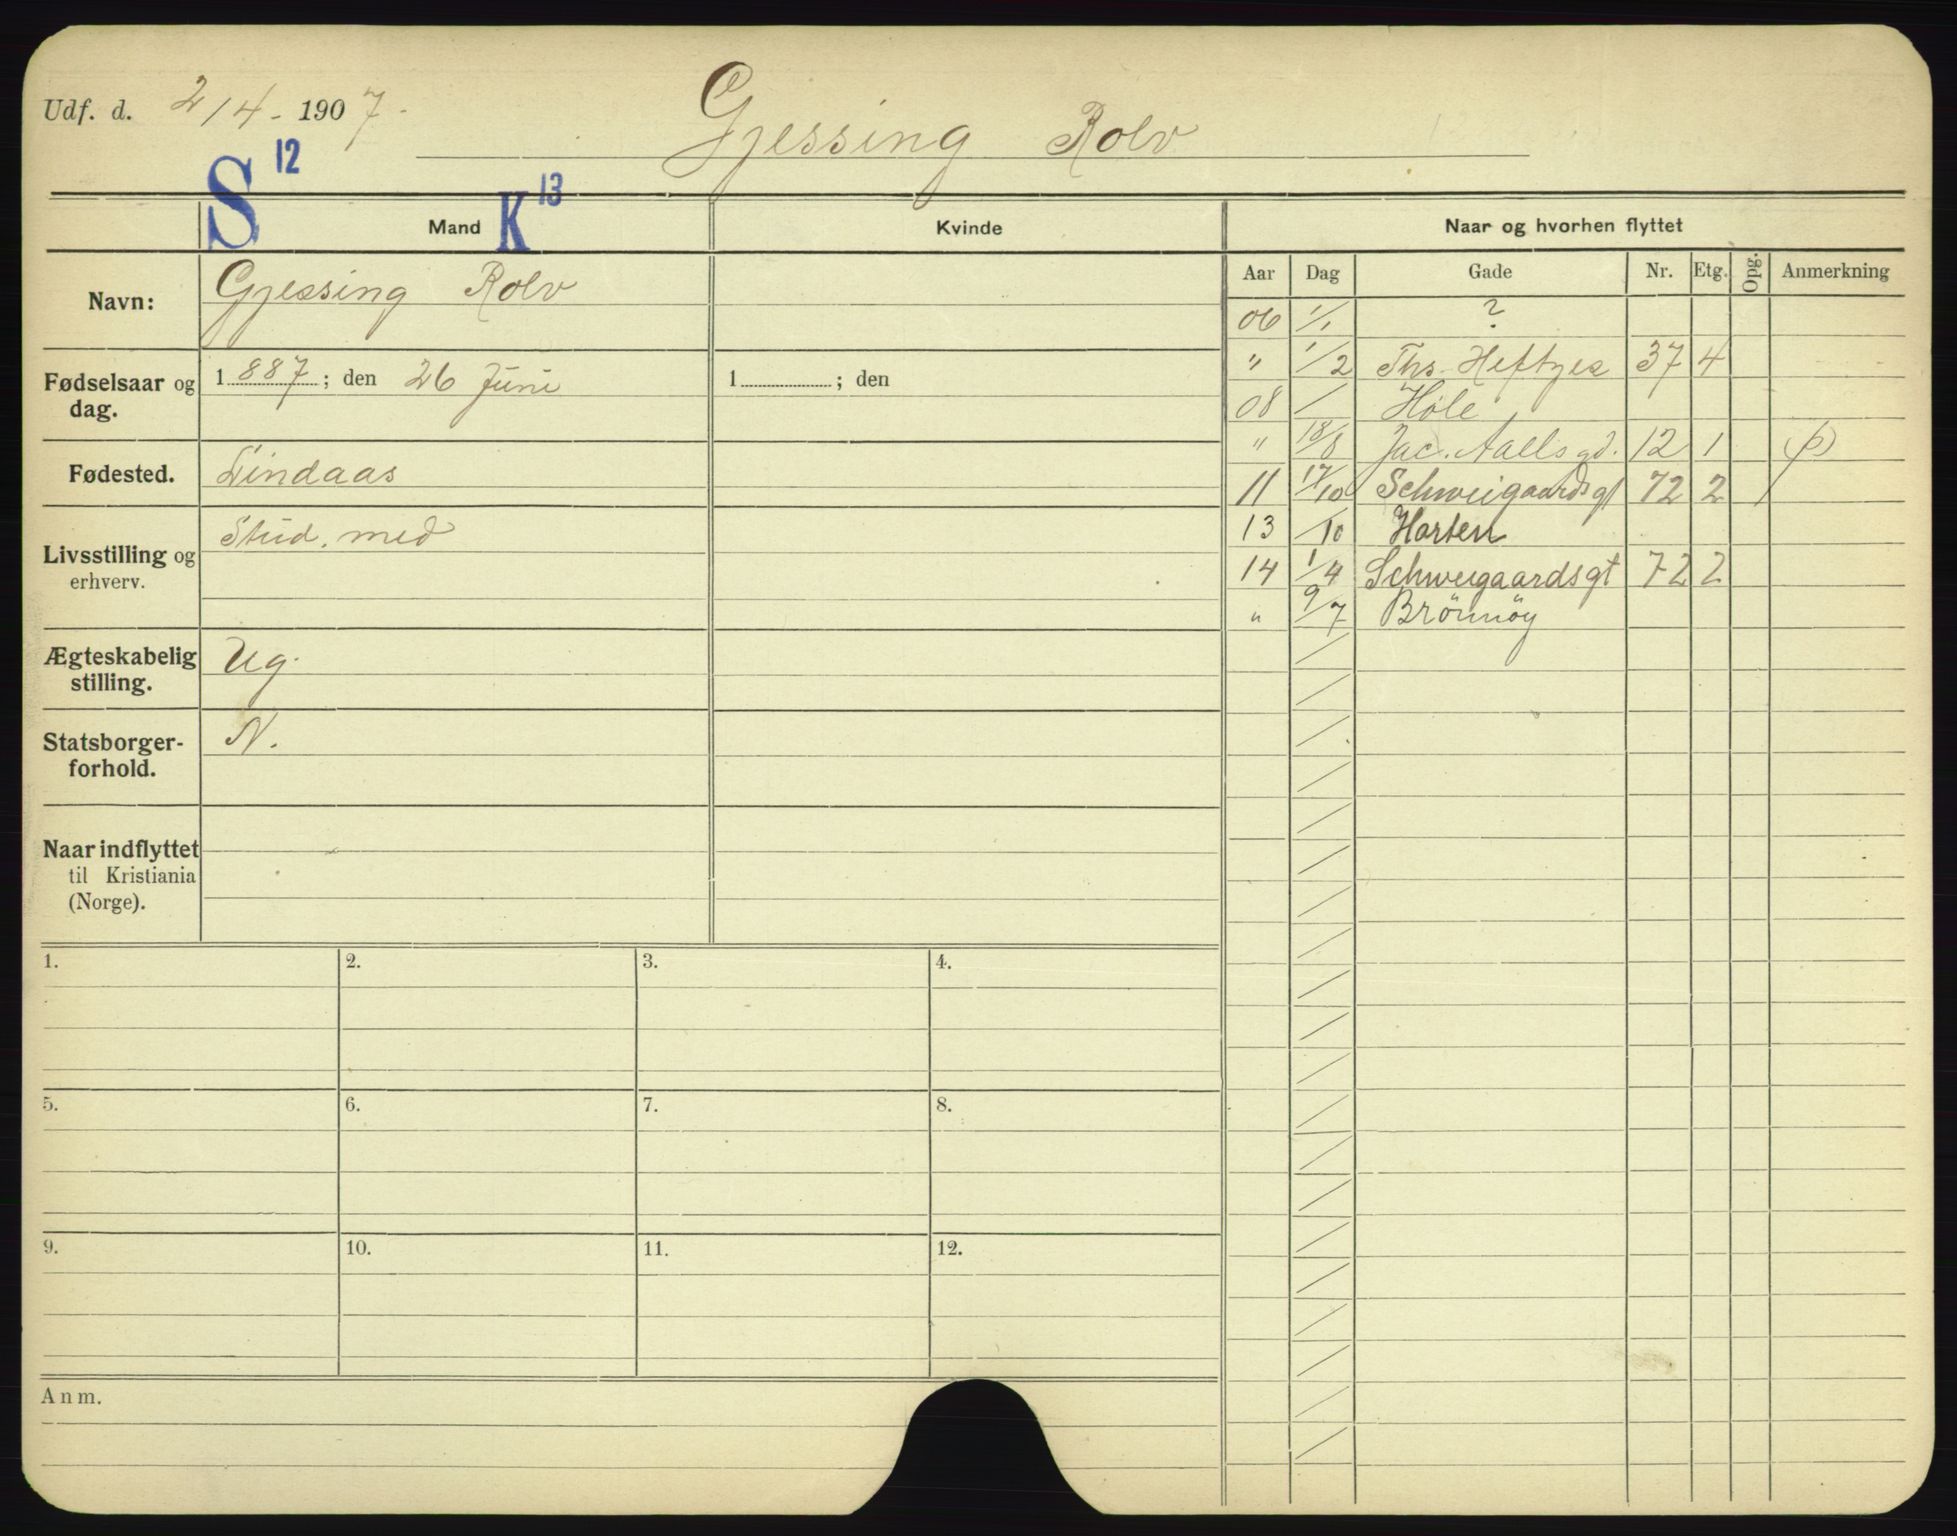 Udf. d. 2/4 - 1907.
Gjessing Rolv
S 12
K 13
Mand
Kvinde
Naar og hvorhen flyttet
Navn:
Gjessing Rolv
Fødselsaar og dag.
1887; den 26 Juni
1 ; den
Fødested.
Lindaas
Livsstilling og erhverv.
Stud. med
Ægteskabelig stilling.
Ug.
Statsborgerforhold.
N.
Naar indflyttet til Kristiania (Norge).
Aar Dag Gade Nr. Etg. Opg. Anmerkning
06 1/1 ?
" 1/2 Ths. Heftyes 37 4
08 / Hole
" 18/8 Jac. Aallsgd. 12 1 (p)
11 17/10 Schweigaardsgt 72 2
13 /10 Horten
14 1/4 Schweigaardsgt 72 2
" 9/7 Brönnöy
1.
2.
3.
4.
5.
6.
7.
8.
9.
10.
11.
12.
Anm.